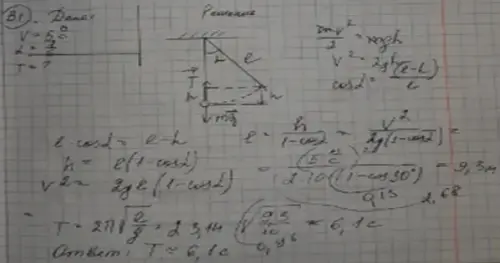 В1. Дано: Решение
V = 5
α =
T = ?
α ℓ
T
h h
mg
mv²/2 = mgh
V² = 2gh
cosα = (ℓ-h)/ℓ
ℓ·cosα = ℓ-h
h = ℓ(1-cosα)
V² = 2gℓ(1-cosα)
ℓ = h/(1-cosα) = V²/(2g(1-cosα)) =
= / (2·10(1-cos30°)) = 9,3м
0,13 2,68
= T = 2π√(ℓ/g) = 2·3,14 √(9,3/10) = 6,1c
0,96
Ответ: T = 6,1c